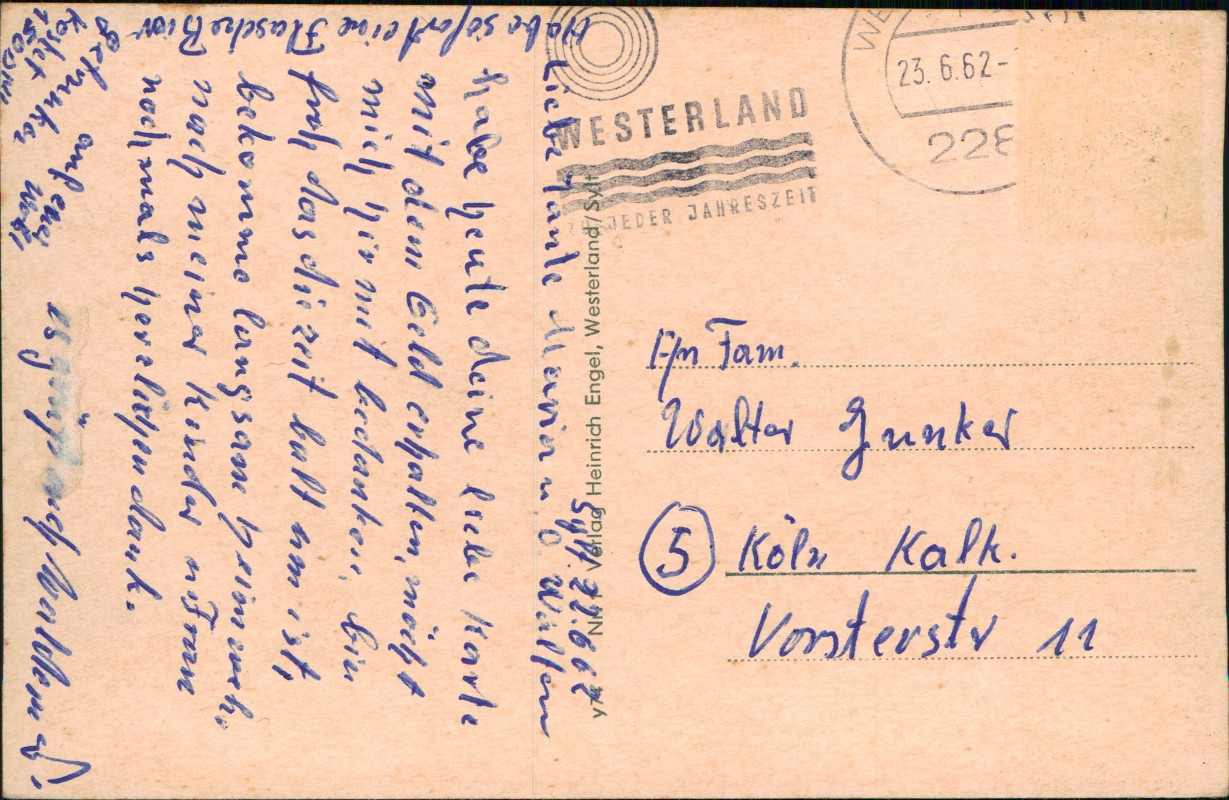 Sylt. 22.6.62
Liebe Tante Maria u. O. Walter
habe heute deine liebe Karte
mit dem Geld erhalten, möcht
mich hirmit bedanken, bin
froh das die zeit balt um ist,
bekomme langsam heimweh.
nach meiner Kinder u Frau
nochmals herzlichen dank.
es grüßt euch
Habe sofort eine Flasche Bier
Westerland
zu jeder Jahreszeit
23.6.62-
228
Verlag Heinrich Engel, Westerland/Sylt
An Fam.
Walter Junker
5 Köln Kalk.
Vorsterstr 11